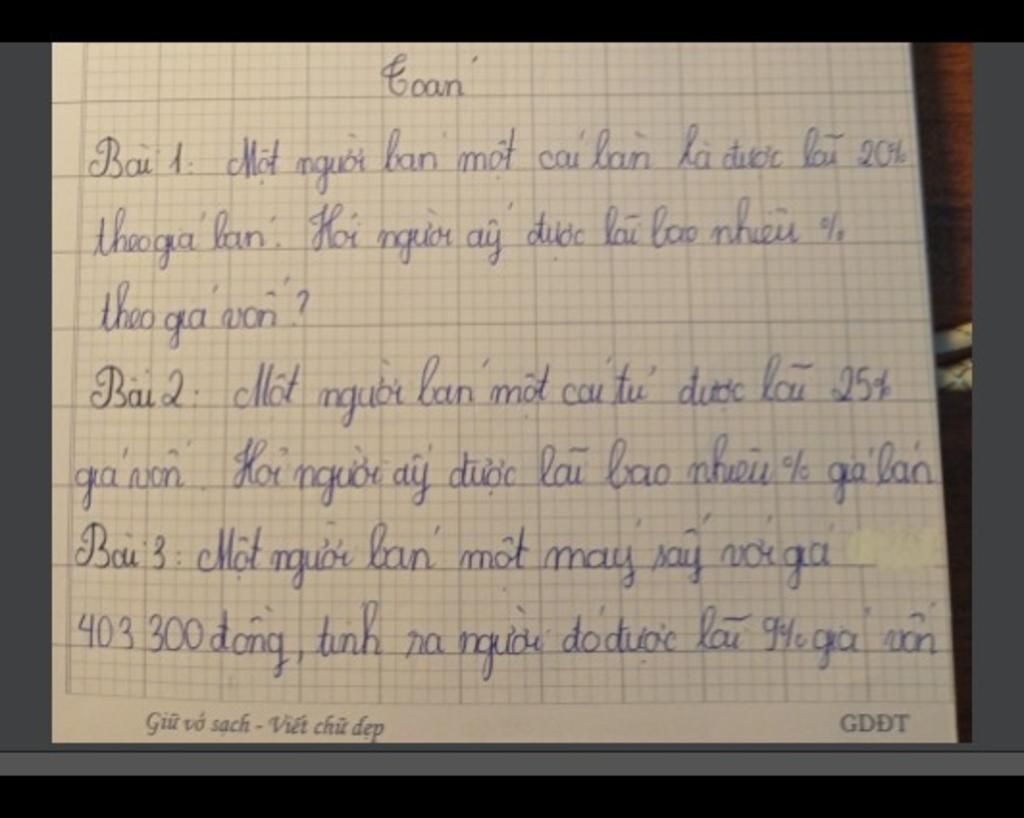 Toán
Bài 1: Một người bán một cái bàn là được lãi 20%
theo giá bán. Hỏi người ấy được lãi bao nhiêu %
theo giá vốn?
Bài 2: Một người bán một cái tủ được lãi 25%
giá vốn. Hỏi người ấy được lãi bao nhiêu % giá bán
Bài 3: Một người bán một máy sấy với giá
403 300 đồng, tính ra người đó được lãi 9% giá vốn
Giữ vở sạch - Viết chữ đẹp
GDĐT